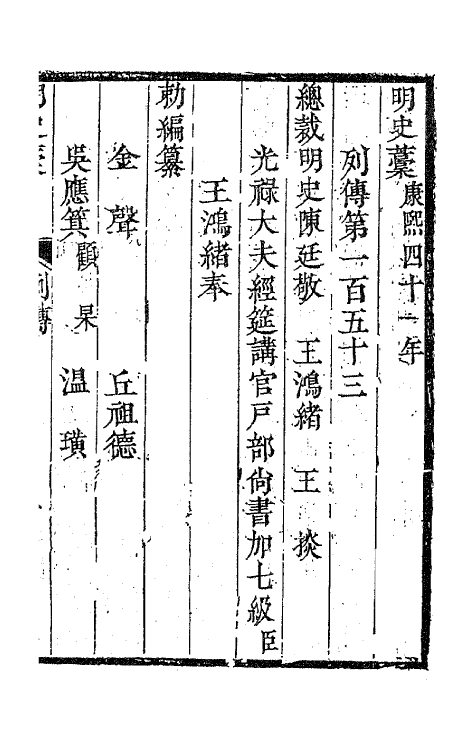 明史藁康熙四十一年
列傳第一百五十三
總裁明史陳廷敬 王鴻緒 王 掞
光祿大夫經筵講官戶部尙書加七級臣
王鴻緒奉
勅編纂
金 聲 丘祖德
吳應箕顧 杲 温 璜
列傳